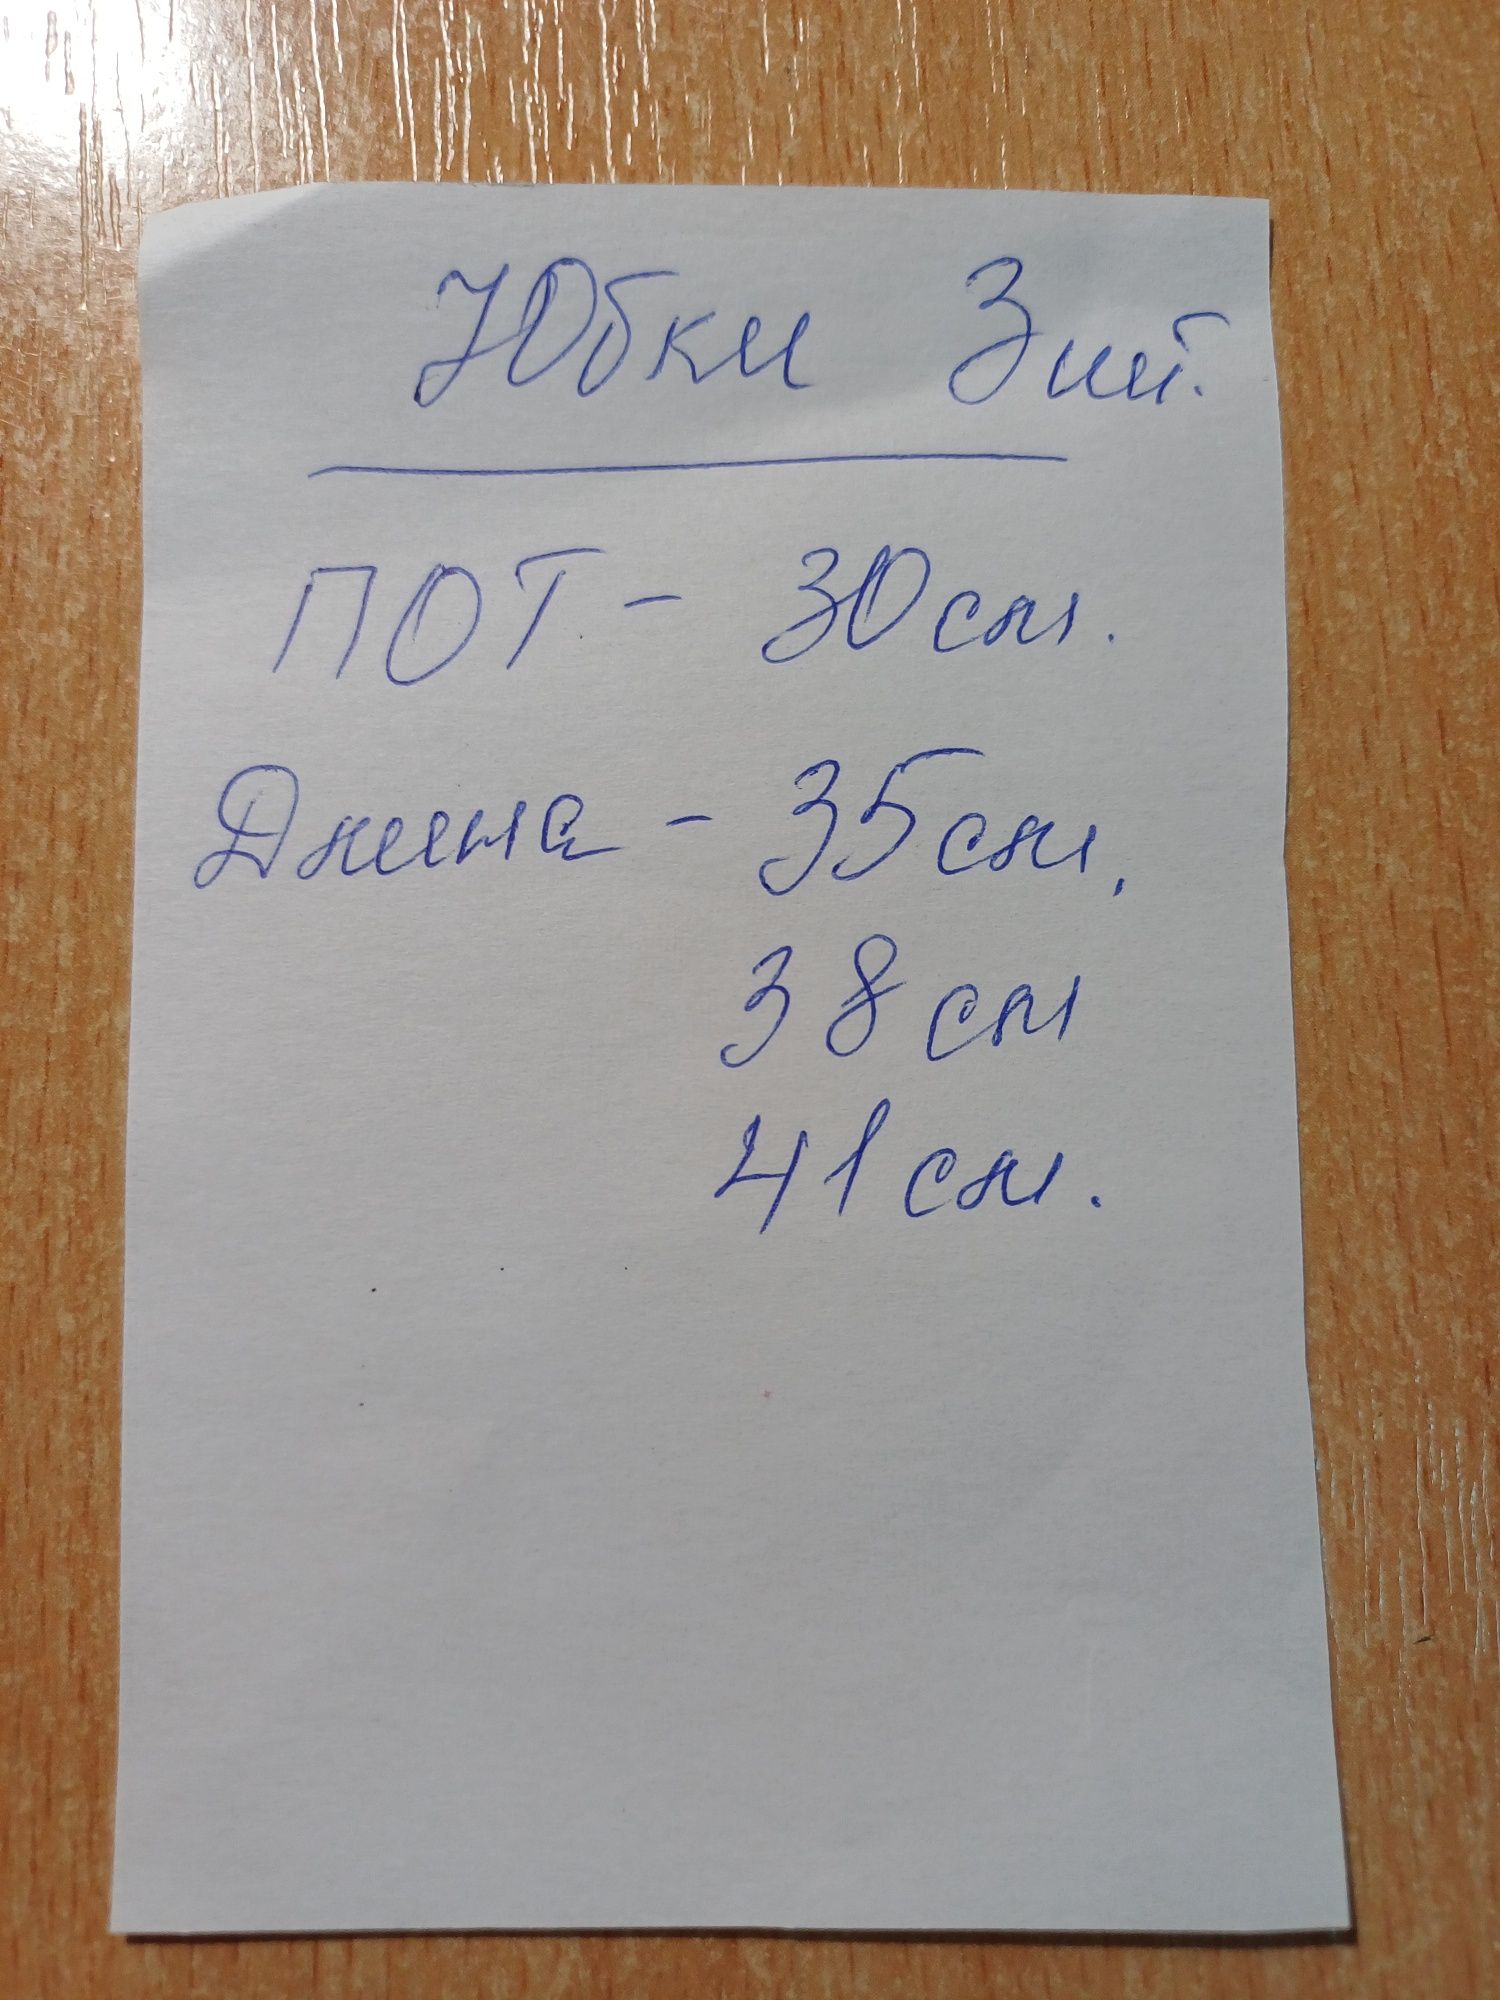 Юбки 3 шт.
ПОТ - 30 см.
Длина - 35 см.
38 см
41 см.